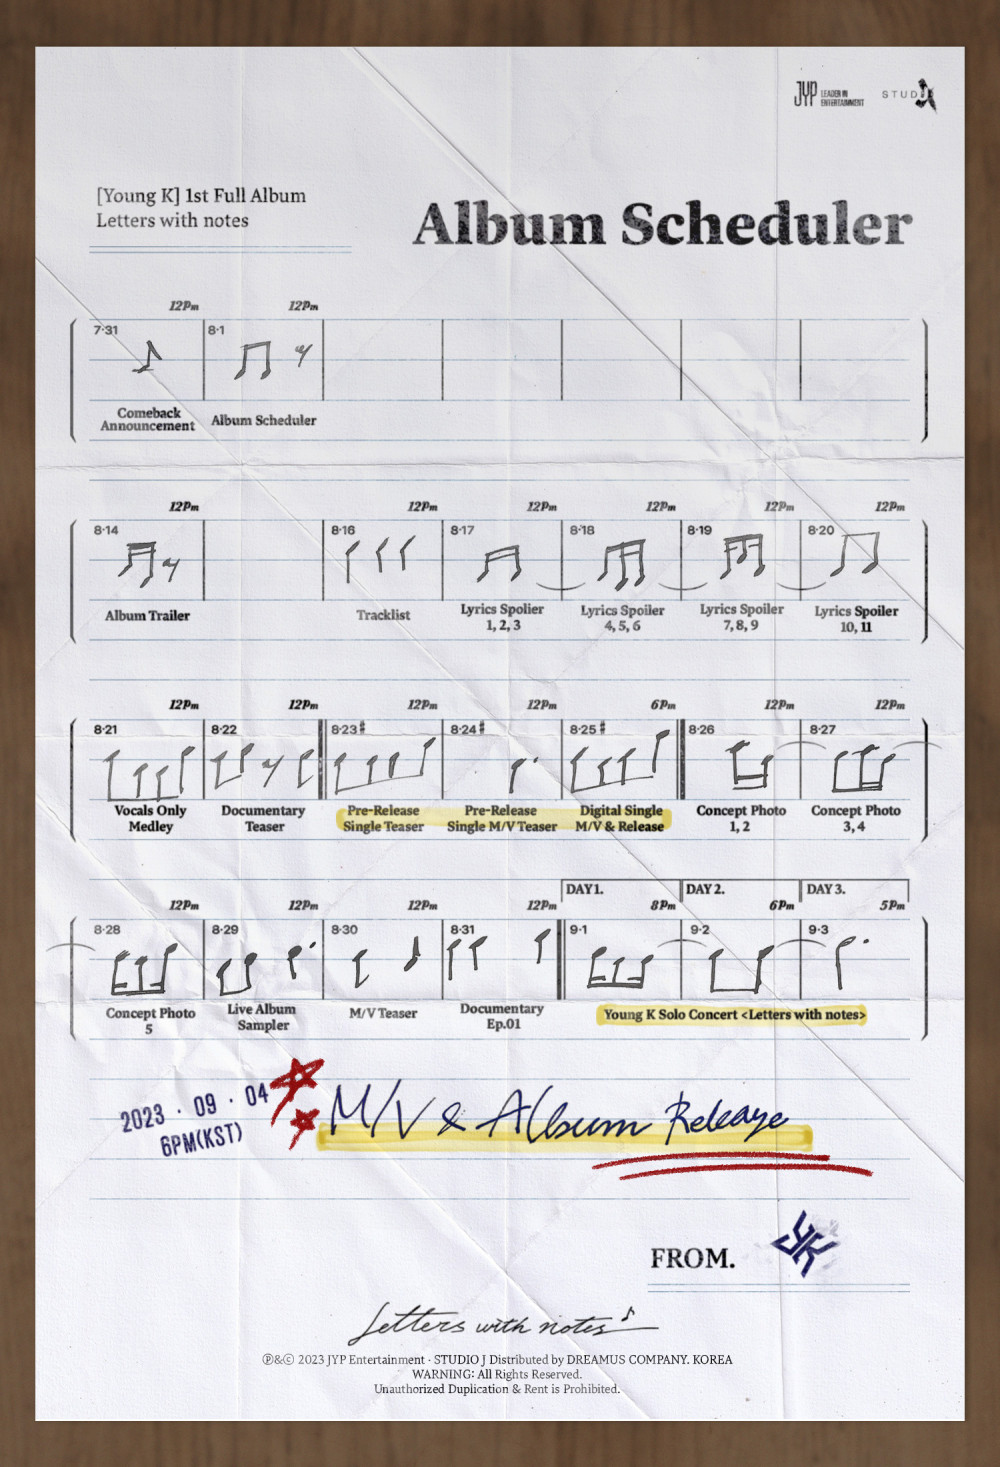 JYP LEADER IN
ENTERTAINMENT
STUDIO J
[Young K] 1st Full Album
Letters with notes
Album Scheduler
12Pm 12Pm
7·31 8·1
Comeback
Announcement
Album Scheduler
12Pm 12Pm 12Pm 12Pm 12Pm 12Pm
8·14 8·16 8·17 8·18 8·19 8·20
Album Trailer
Tracklist
Lyrics Spolier
1, 2, 3
Lyrics Spoiler
4, 5, 6
Lyrics Spoiler
7, 8, 9
Lyrics Spoiler
10, 11
12Pm 12Pm 12Pm 12Pm 6Pm 12Pm 12Pm
8·21 8·22 8·23 8·24 8·25 8·26 8·27
Vocals Only
Medley
Documentary
Teaser
Pre-Release
Single Teaser
Pre-Release
Single M/V Teaser
Digital Single
M/V & Release
Concept Photo
1, 2
Concept Photo
3, 4
DAY1. DAY2. DAY3.
12Pm 12Pm 12Pm 12Pm 8Pm 6Pm 5Pm
8·28 8·29 8·30 8·31 9·1 9·2 9·3
Concept Photo
5
Live Album
Sampler
M/V Teaser
Documentary
Ep.01
Young K Solo Concert <Letters with notes>
2023 · 09 · 04
6PM(KST)
M/V & Album Release
FROM. YK
Letters with notes
Ⓟ&ⓒ 2023 JYP Entertainment · STUDIO J Distributed by DREAMUS COMPANY. KOREA
WARNING: All Rights Reserved.
Unauthorized Duplication & Rent is Prohibited.